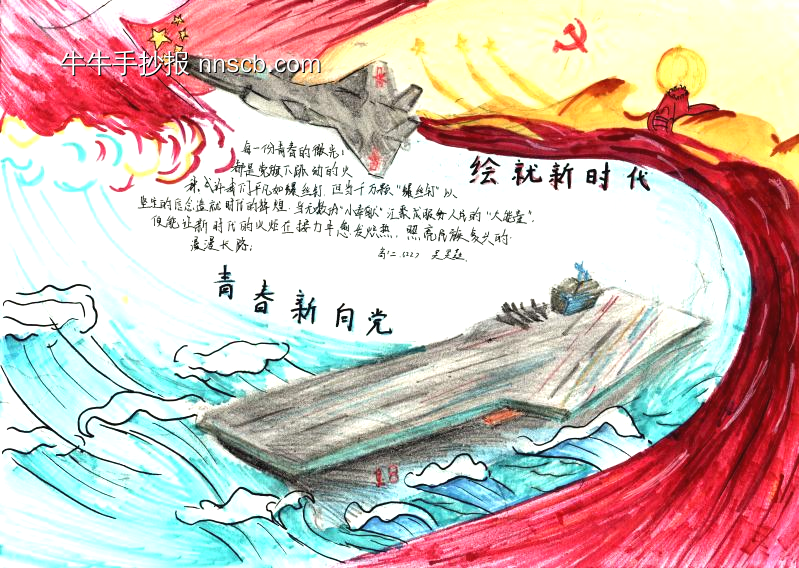 牛牛手抄报 nnscb.com
每一份青春的微光，
都是党旗下跳动的火
种，或许我们平凡如螺丝钉，但当千万颗“螺丝钉”以
坚定的信念造就时代的辉煌，当无数的“小奉献”汇聚成服务人民的“大能量”，
便能让新时代的火炬在接力中愈发炽热，照亮民族复兴的
漫漫长路！
高二
绘就新时代
青春新向党
18